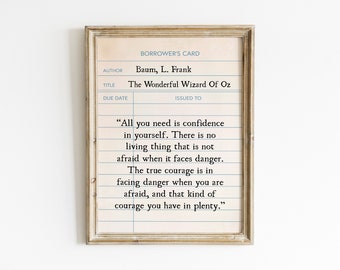 BORROWER'S CARD
AUTHOR Baum, L. Frank
TITLE The Wonderful Wizard Of Oz
DUE DATE ISSUED TO
“All you need is confidence
in yourself. There is no
living thing that is not
afraid when it faces danger.
The true courage is in
facing danger when you are
afraid, and that kind of
courage you have in plenty.”